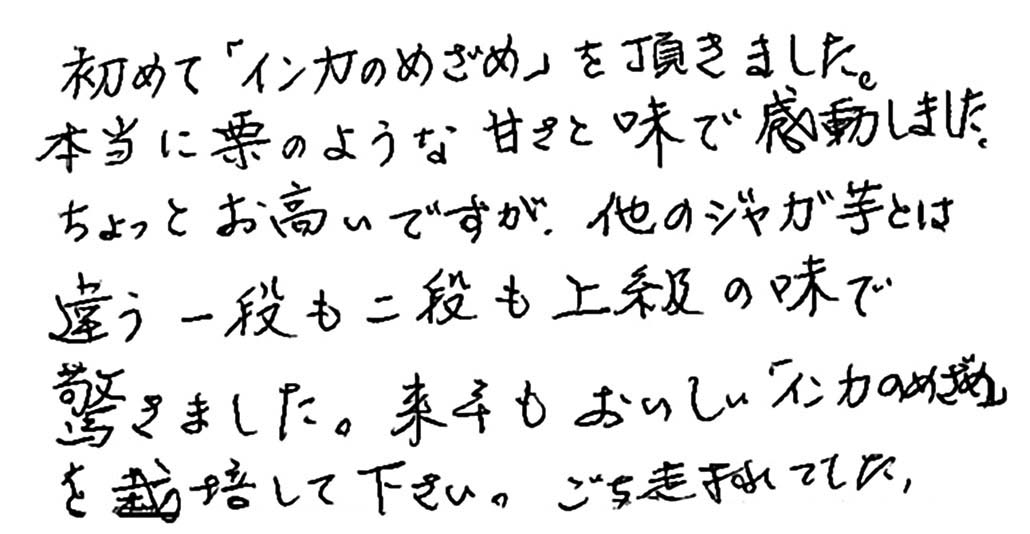 初めて「インカのめざめ」を頂きました。
本当に栗のような甘さと味で感動しました。
ちょっとお高いですが、他のジャガ芋とは
違う一段も二段も上級の味で
驚きました。来年もおいしい「インカのめざめ」
を栽培して下さい。ごち走さまでした。